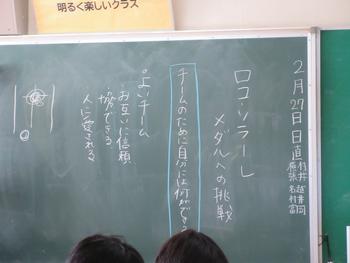 明るく楽しいクラス
2月27日日直
ロコ・ソラーレ
メダルへの挑戦
チームのために自分には何ができる
よいチーム
お互いに信頼
協力できる
人に愛される